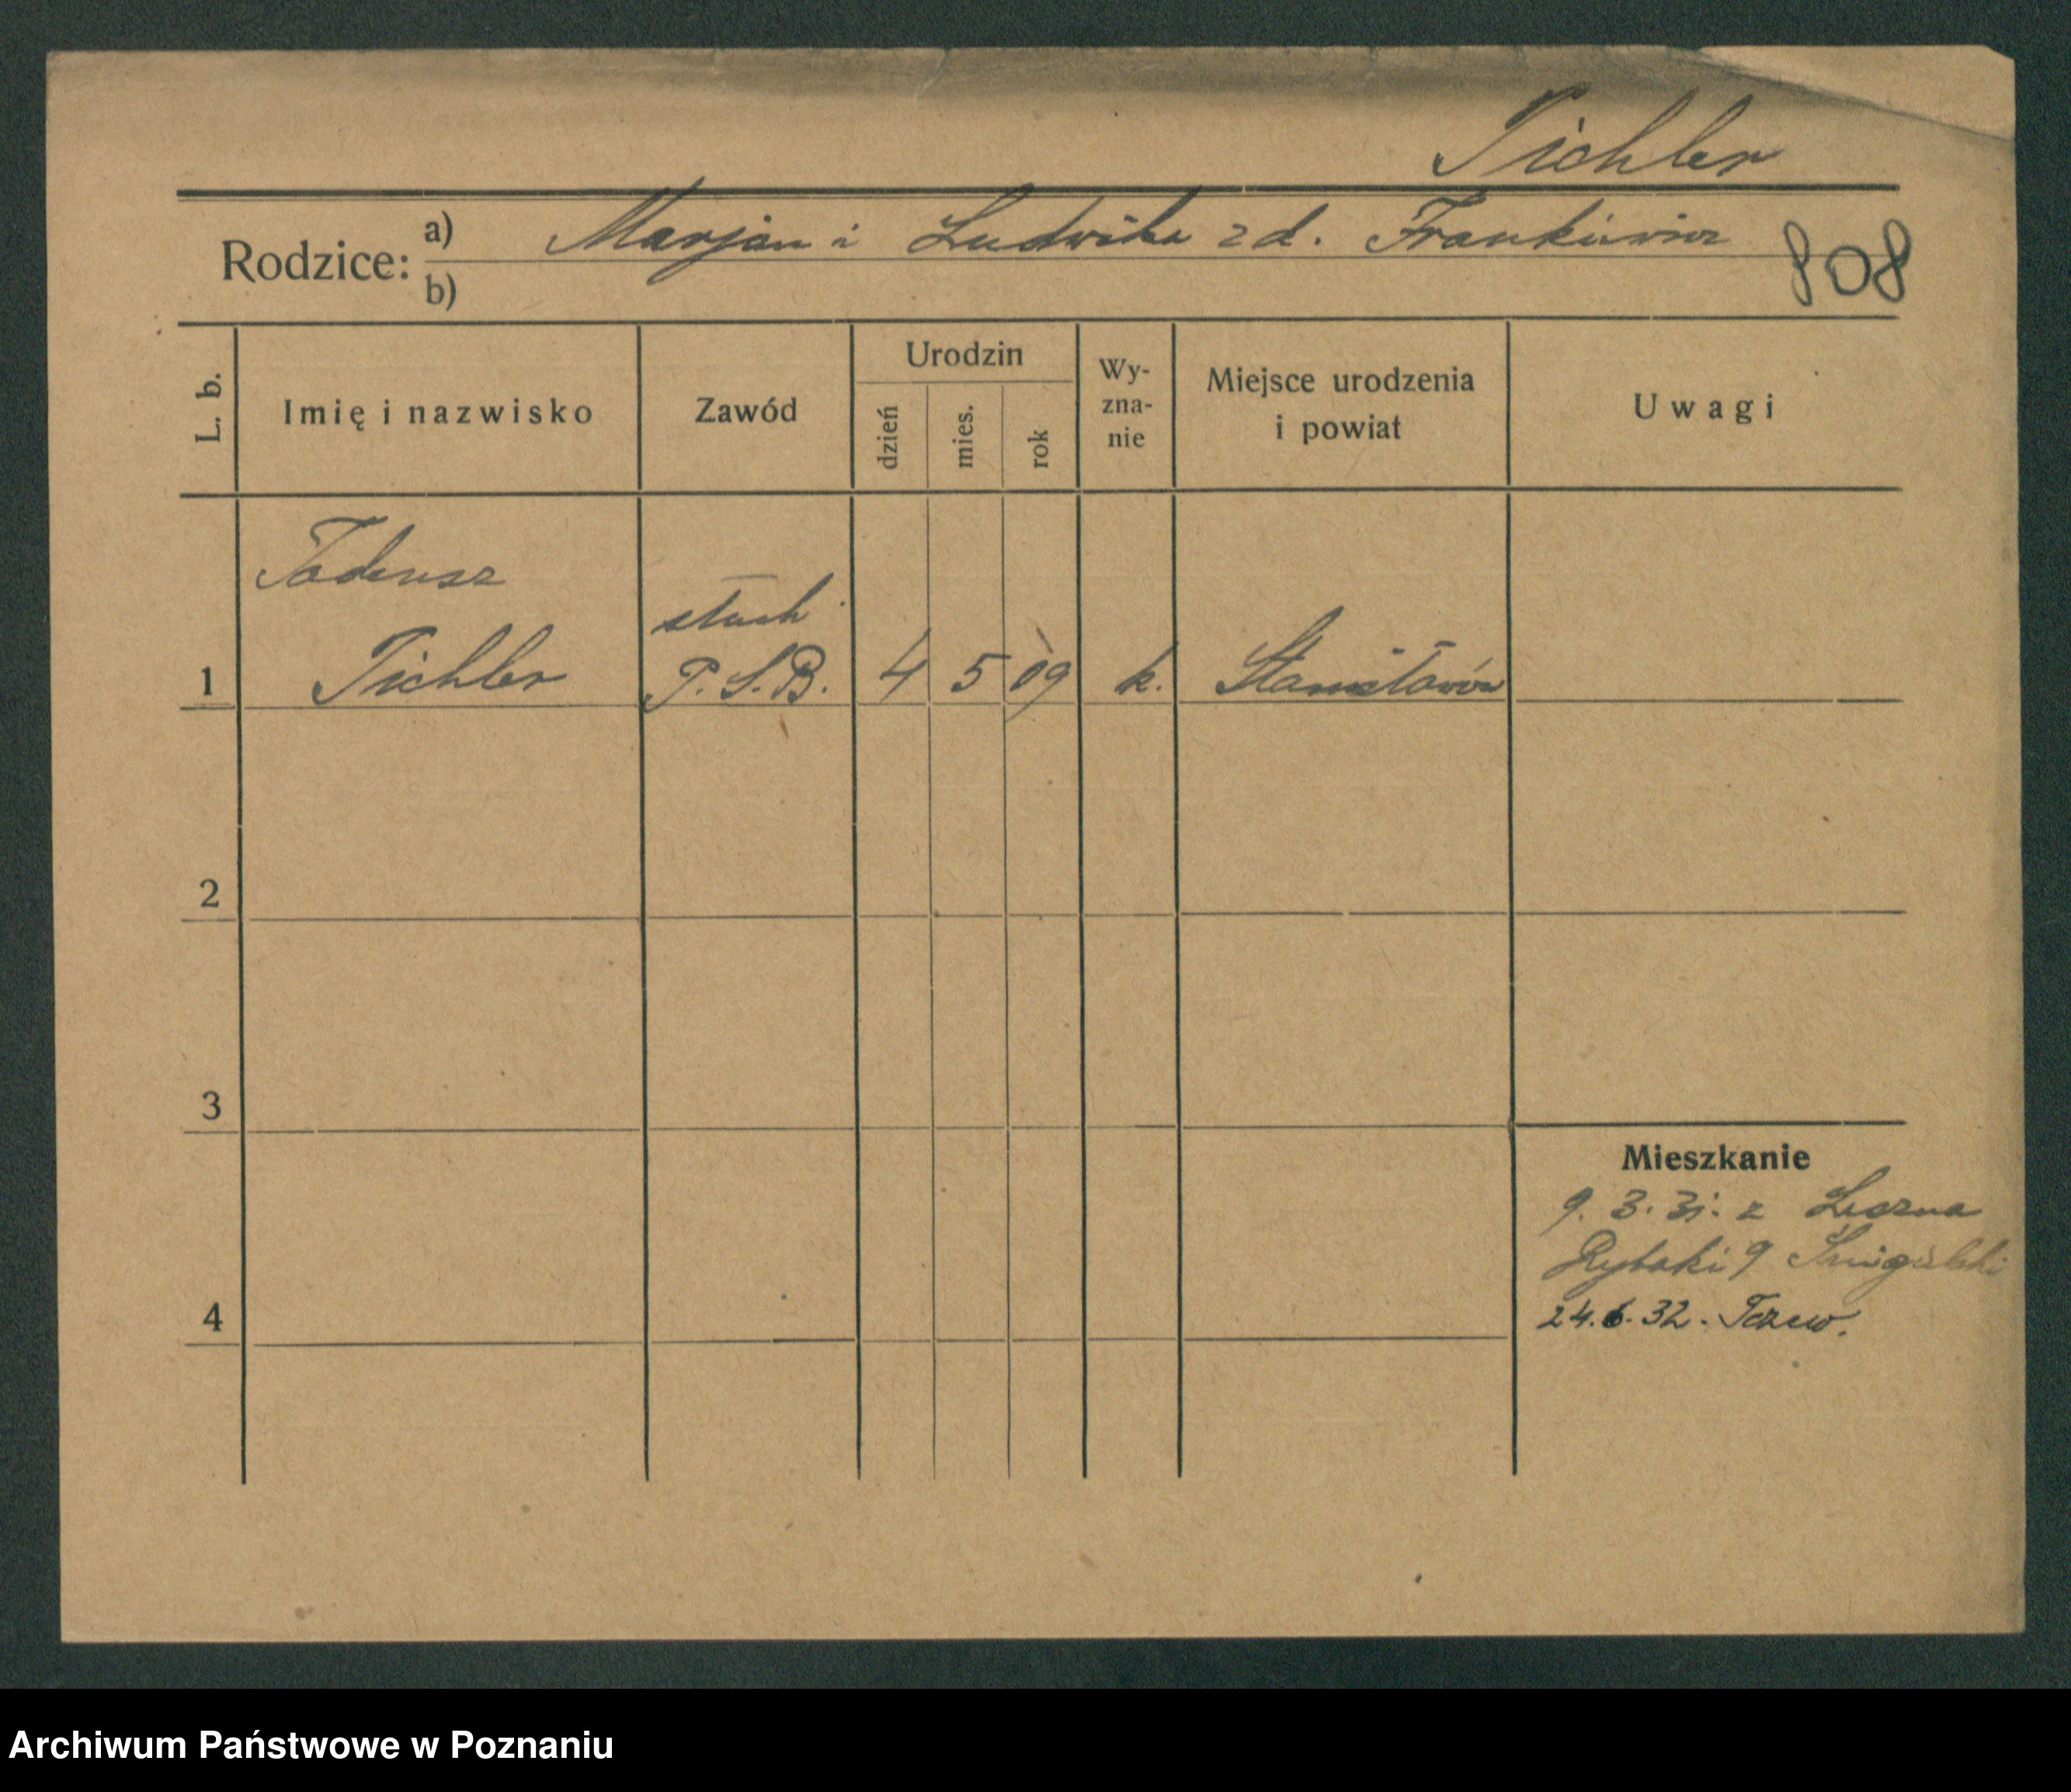 Tichler
Rodzice: a) Marjan i Ludwika z d. Frankiewicz
b)
808
L. b.
Imię i nazwisko
Zawód
Urodzin
dzień
mies.
rok
Wy-
zna-
nie
Miejsce urodzenia
i powiat
Uwagi
Tadeusz
słuch.
1 Tichler P. S. B. 4 5 09 k. Stanisławów
2
3
Mieszkanie
9. 3. 31. z
Rybaki 9
24. 6. 32. Tczew.
4
Archiwum Państwowe w Poznaniu